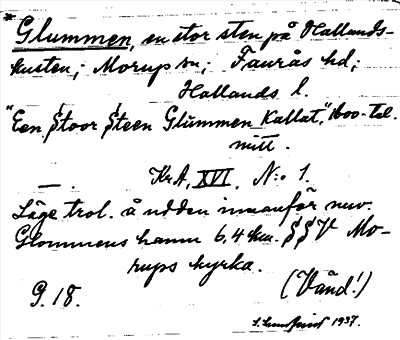 *Glummen, en stor sten på Hallands-
kusten; Morup sn; Faurås hd;
Hallands l.
"Een Stoor Steen Glummen Kallat", 1600-tal.
mitt.
— . Kr.A, XVI. N:o 1.
Läge trol. å udden innanför nuv.
Glommens hamn 6,4 km. SSV Mo-
rups kyrka.
(Vänd!)
G. 18.
1937.